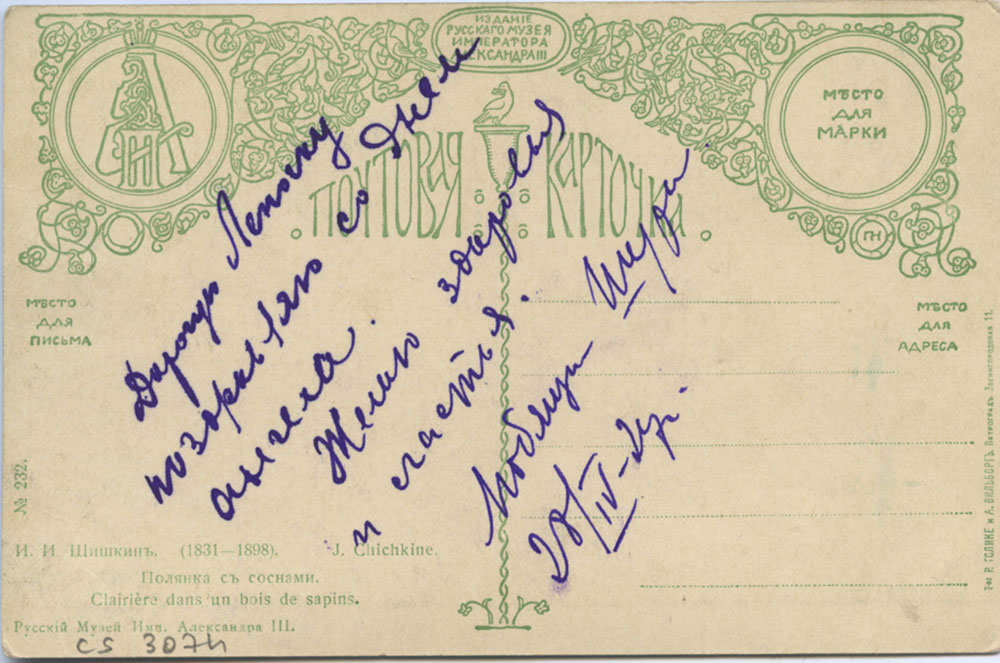 ИЗДАНІЕ
РУССКАГО МУЗЕЯ
ИМПЕРАТОРА
АЛЕКСАНДРА III
МѢСТО
ДЛЯ
МАРКИ
ПОЧТОВАЯ КАРТОЧКА
МѢСТО
ДЛЯ
ПИСЬМА
МѢСТО
ДЛЯ
АДРЕСА
Дорогую
поздравляю со днем
ангела.
Желаю здоровья
и счастья.
Любящи
28/IV
№ 232.
И. И. Шишкинъ. (1831—1898). J. Chichkine.
Полянка съ соснами.
Clairière dans un bois de sapins.
Русскій Музей Имп. Александра III.
CS 3074
Т-во Р. ГОЛИКЕ и А. ВИЛЬБОРГЪ. ПЕТРОГРАДЪ. Звенигородская 11.